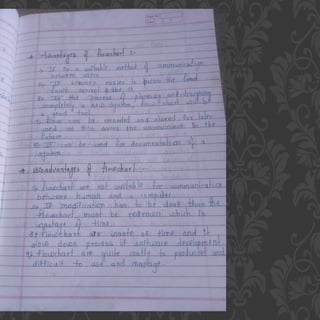 * Advantages of flowchart :-
It is a suitable method of communication
between users
It becomes easier to guess the
fault, correct
In the process of planning and designing
completely a new system, flow chart will be
a good tool.
Flow can be recorded and stored for later
used as this saves the in
the future.
It can be used for documentation of a
system.
* Disadvantages of flowchart :-
flowchart are not suitable for communication
between human and a computer.
If modification has to be done then the
flowchart must be redrawn which is
wastage of time.
flowchart are waste of time and it
slow down process of software development.
flowchart are quite costly to produced and
difficult to use and manage.